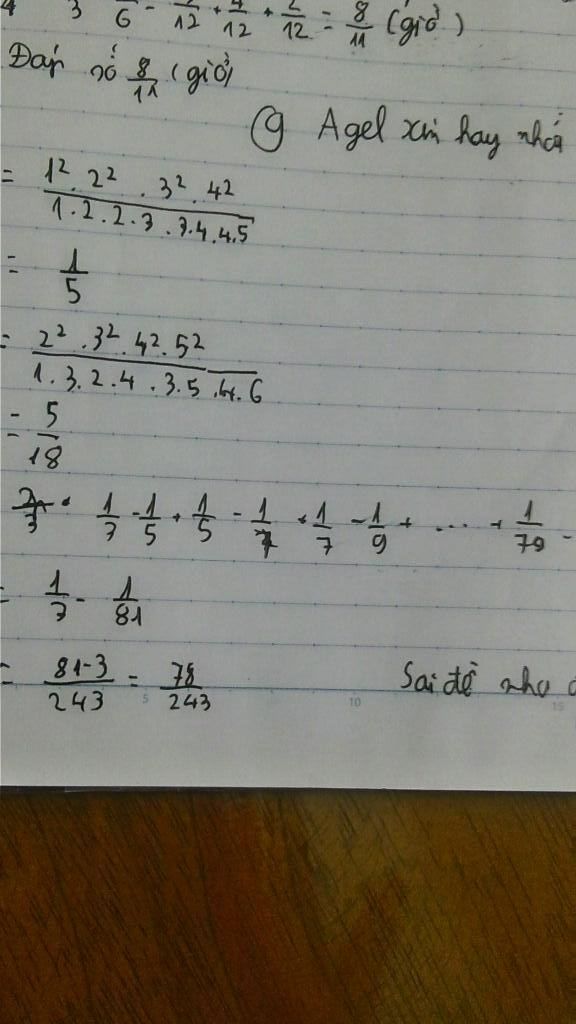 4 3 6 - 12 + 4/12 + 2/12 = 8/11 (giờ)
Đáp số 8/11 (giờ)
9 Agel xin hay nhớ
= 1² . 2² . 3² . 4² / 1 . 2 . 2 . 3 . 3 . 4 . 4 . 5
= 1/5
= 2² . 3² . 4² . 5² / 1 . 3 . 2 . 4 . 3 . 5 . 4 . 6
= 5/18
1/3 - 1/5 + 1/5 - 1/7 + 1/7 - 1/9 + ... + 1/79 -
= 1/3 - 1/81
= 81-3/243 = 78/243
Sai đề như
5 10 15